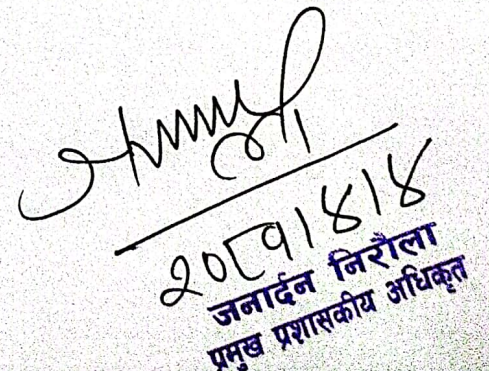 २०८१।४।४
जनार्दन निरौला
प्रमुख प्रशासकीय अधिकृत